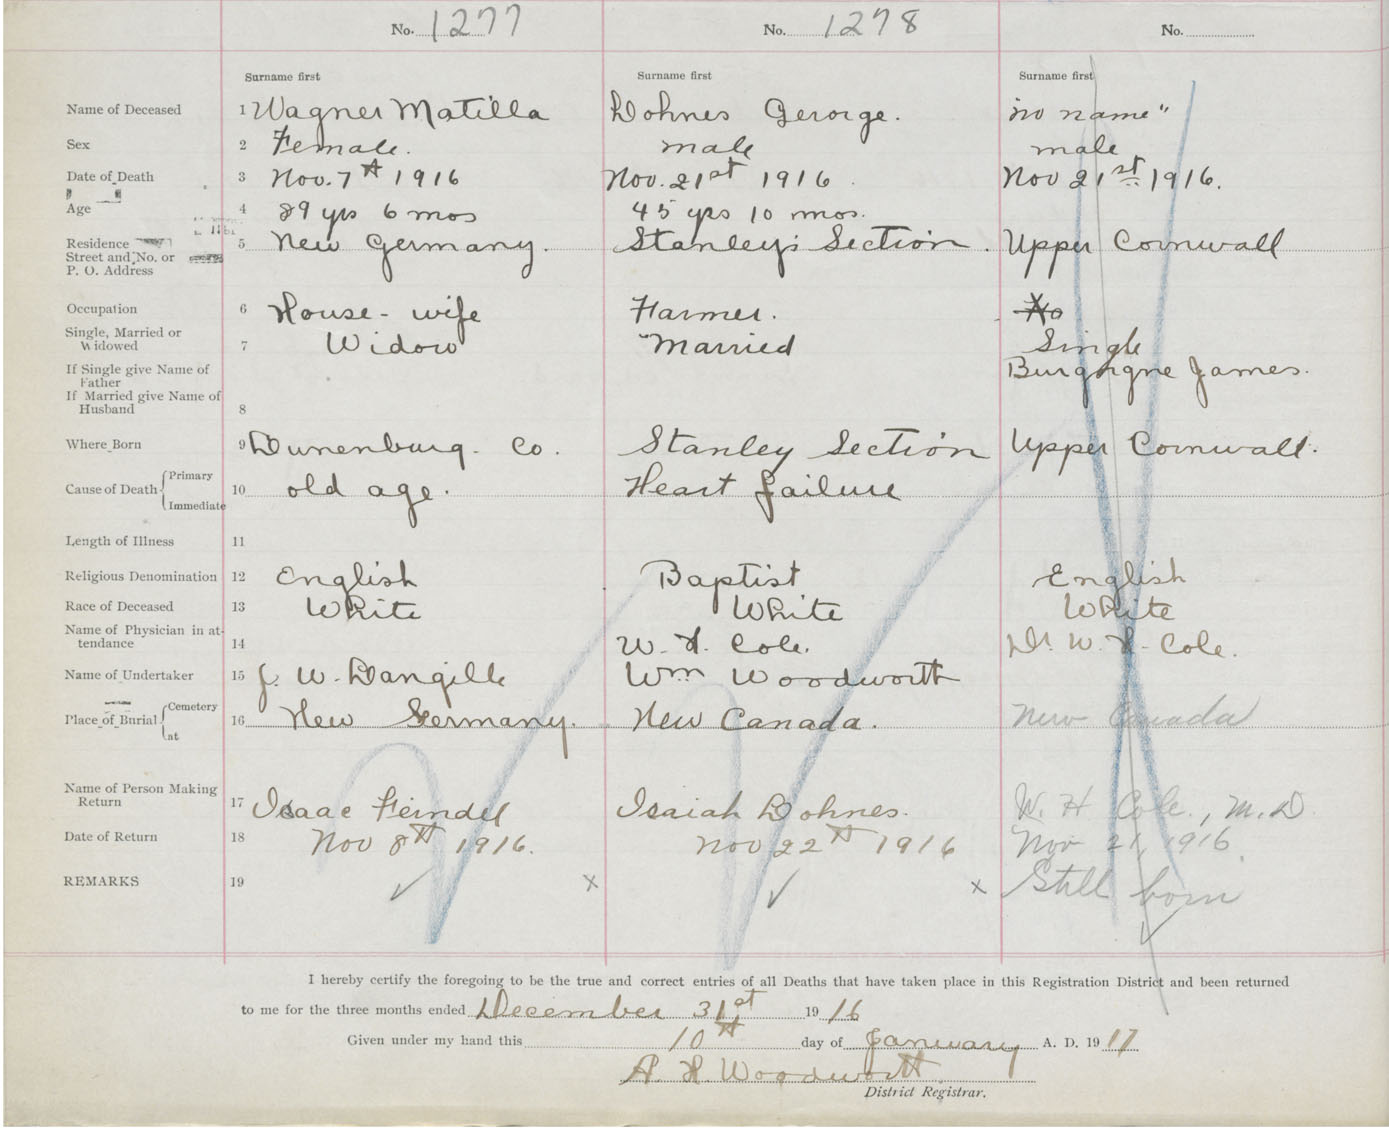 No. 1277 No. 1278 No.
Surname first Surname first Surname first
Name of Deceased 1 Wagner Matilla Dohnes Gerorge. "no name"
Sex 2 Female. male male
Date of Death 3 Nov. 7th 1916 Nov. 21st 1916 Nov 21st 1916.
Age 4 89 yrs 6 mos 45 yrs 10 mos.
Residence 5 New Germany. Stanley's Section. Upper Cornwall
Street and No. or
P. O. Address
Occupation 6 House-wife Farmer. No
Single, Married or
Widowed 7 Widow Married Single
If Single give Name of
Father Burgoyne James.
If Married give Name of
Husband 8
Where Born 9 Lunenburg. Co. Stanley Section Upper Cornwall.
Cause of Death Primary
10 old age. Heart failure
Immediate
Length of Illness 11
Religious Denomination 12 English Baptist English
Race of Deceased 13 White White White
Name of Physician in at-
tendance 14 W. H. Cole. Dr. W. H. Cole.
Name of Undertaker 15 J. W. Dangille Wm Woodworth
Place of Burial Cemetery
16 New Germany. New Canada. New Canada
nt
Name of Person Making
Return 17 Isaac Feindel Isaiah Dohnes. W. H. Cole, M.D.
Date of Return 18 Nov 8th 1916. Nov 22th 1916 Nov 21, 1916
REMARKS 19 x x Still born
I hereby certify the foregoing to be the true and correct entries of all Deaths that have taken place in this Registration District and been returned
to me for the three months ended December 31st 1916
Given under my hand this 10th day of January A. D. 1917
A. H. Woodworth
District Registrar.